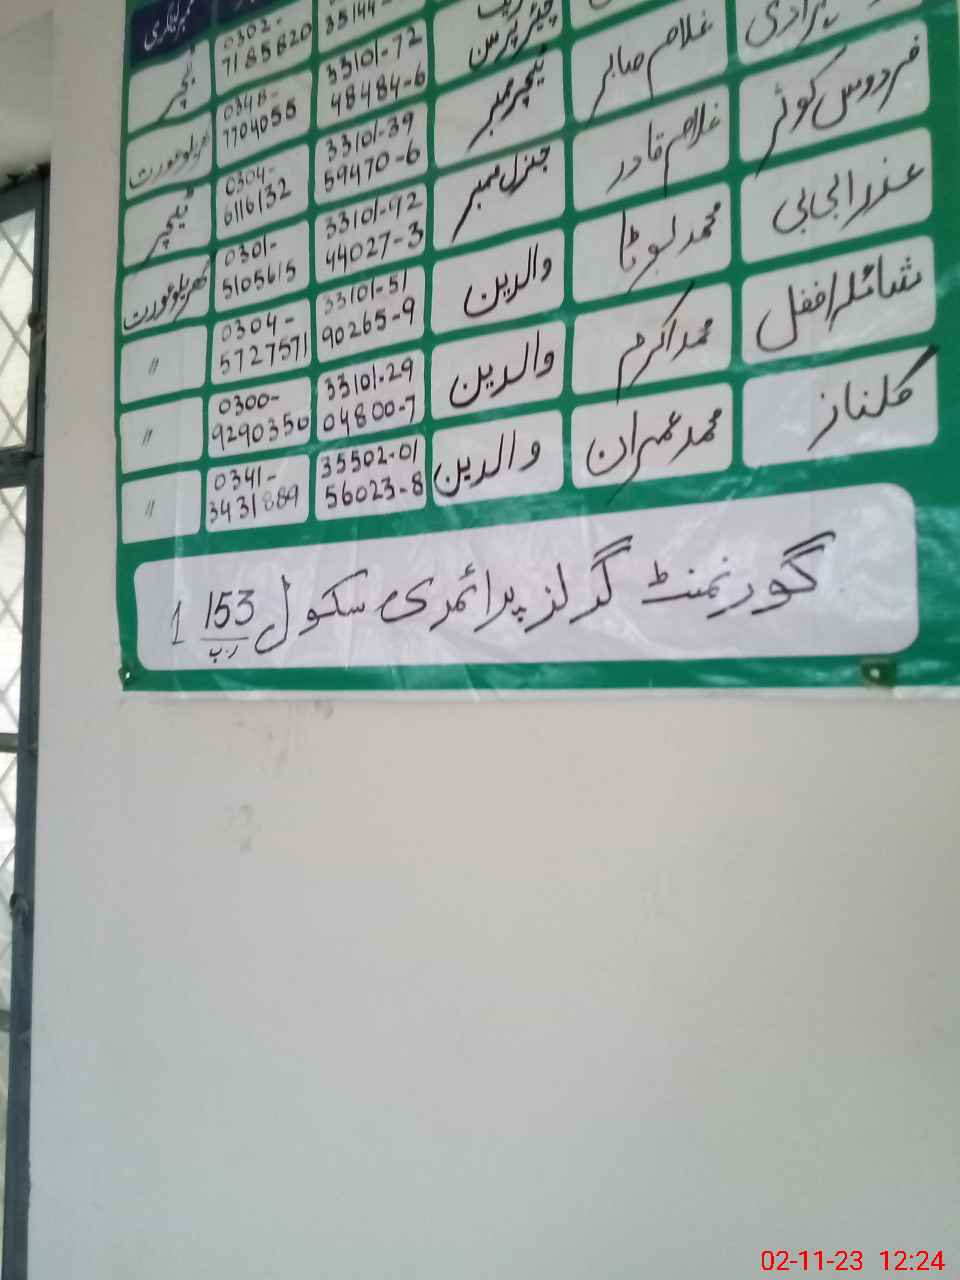 ممبر کیٹگری
ٹیچر 0302-7185820 35144- چیئرپرسن
ٹیچر ممبر 33101-72 48484-6 غلام صابر
گھریلو عورت 0348-7704055
فردوس کوثر غلام قادر جنرل ممبر 33101-39 59470-6 0304-6116132 ٹیچر
عذرا بی بی محمد بوٹا والدین 33101-92 44027-3 0301-5105615 گھریلو عورت
شائلہ افضل محمد اکرم والدین 33101-51 90265-9 0304-5727571 〃
گلناز محمد عمران والدین 33101-29 04800-7 0300-9290350 〃
35502-01 56023-8 0341-3431889 〃
گورنمنٹ گرلز پرائمری سکول 153 ر ب 1
02-11-23 12:24